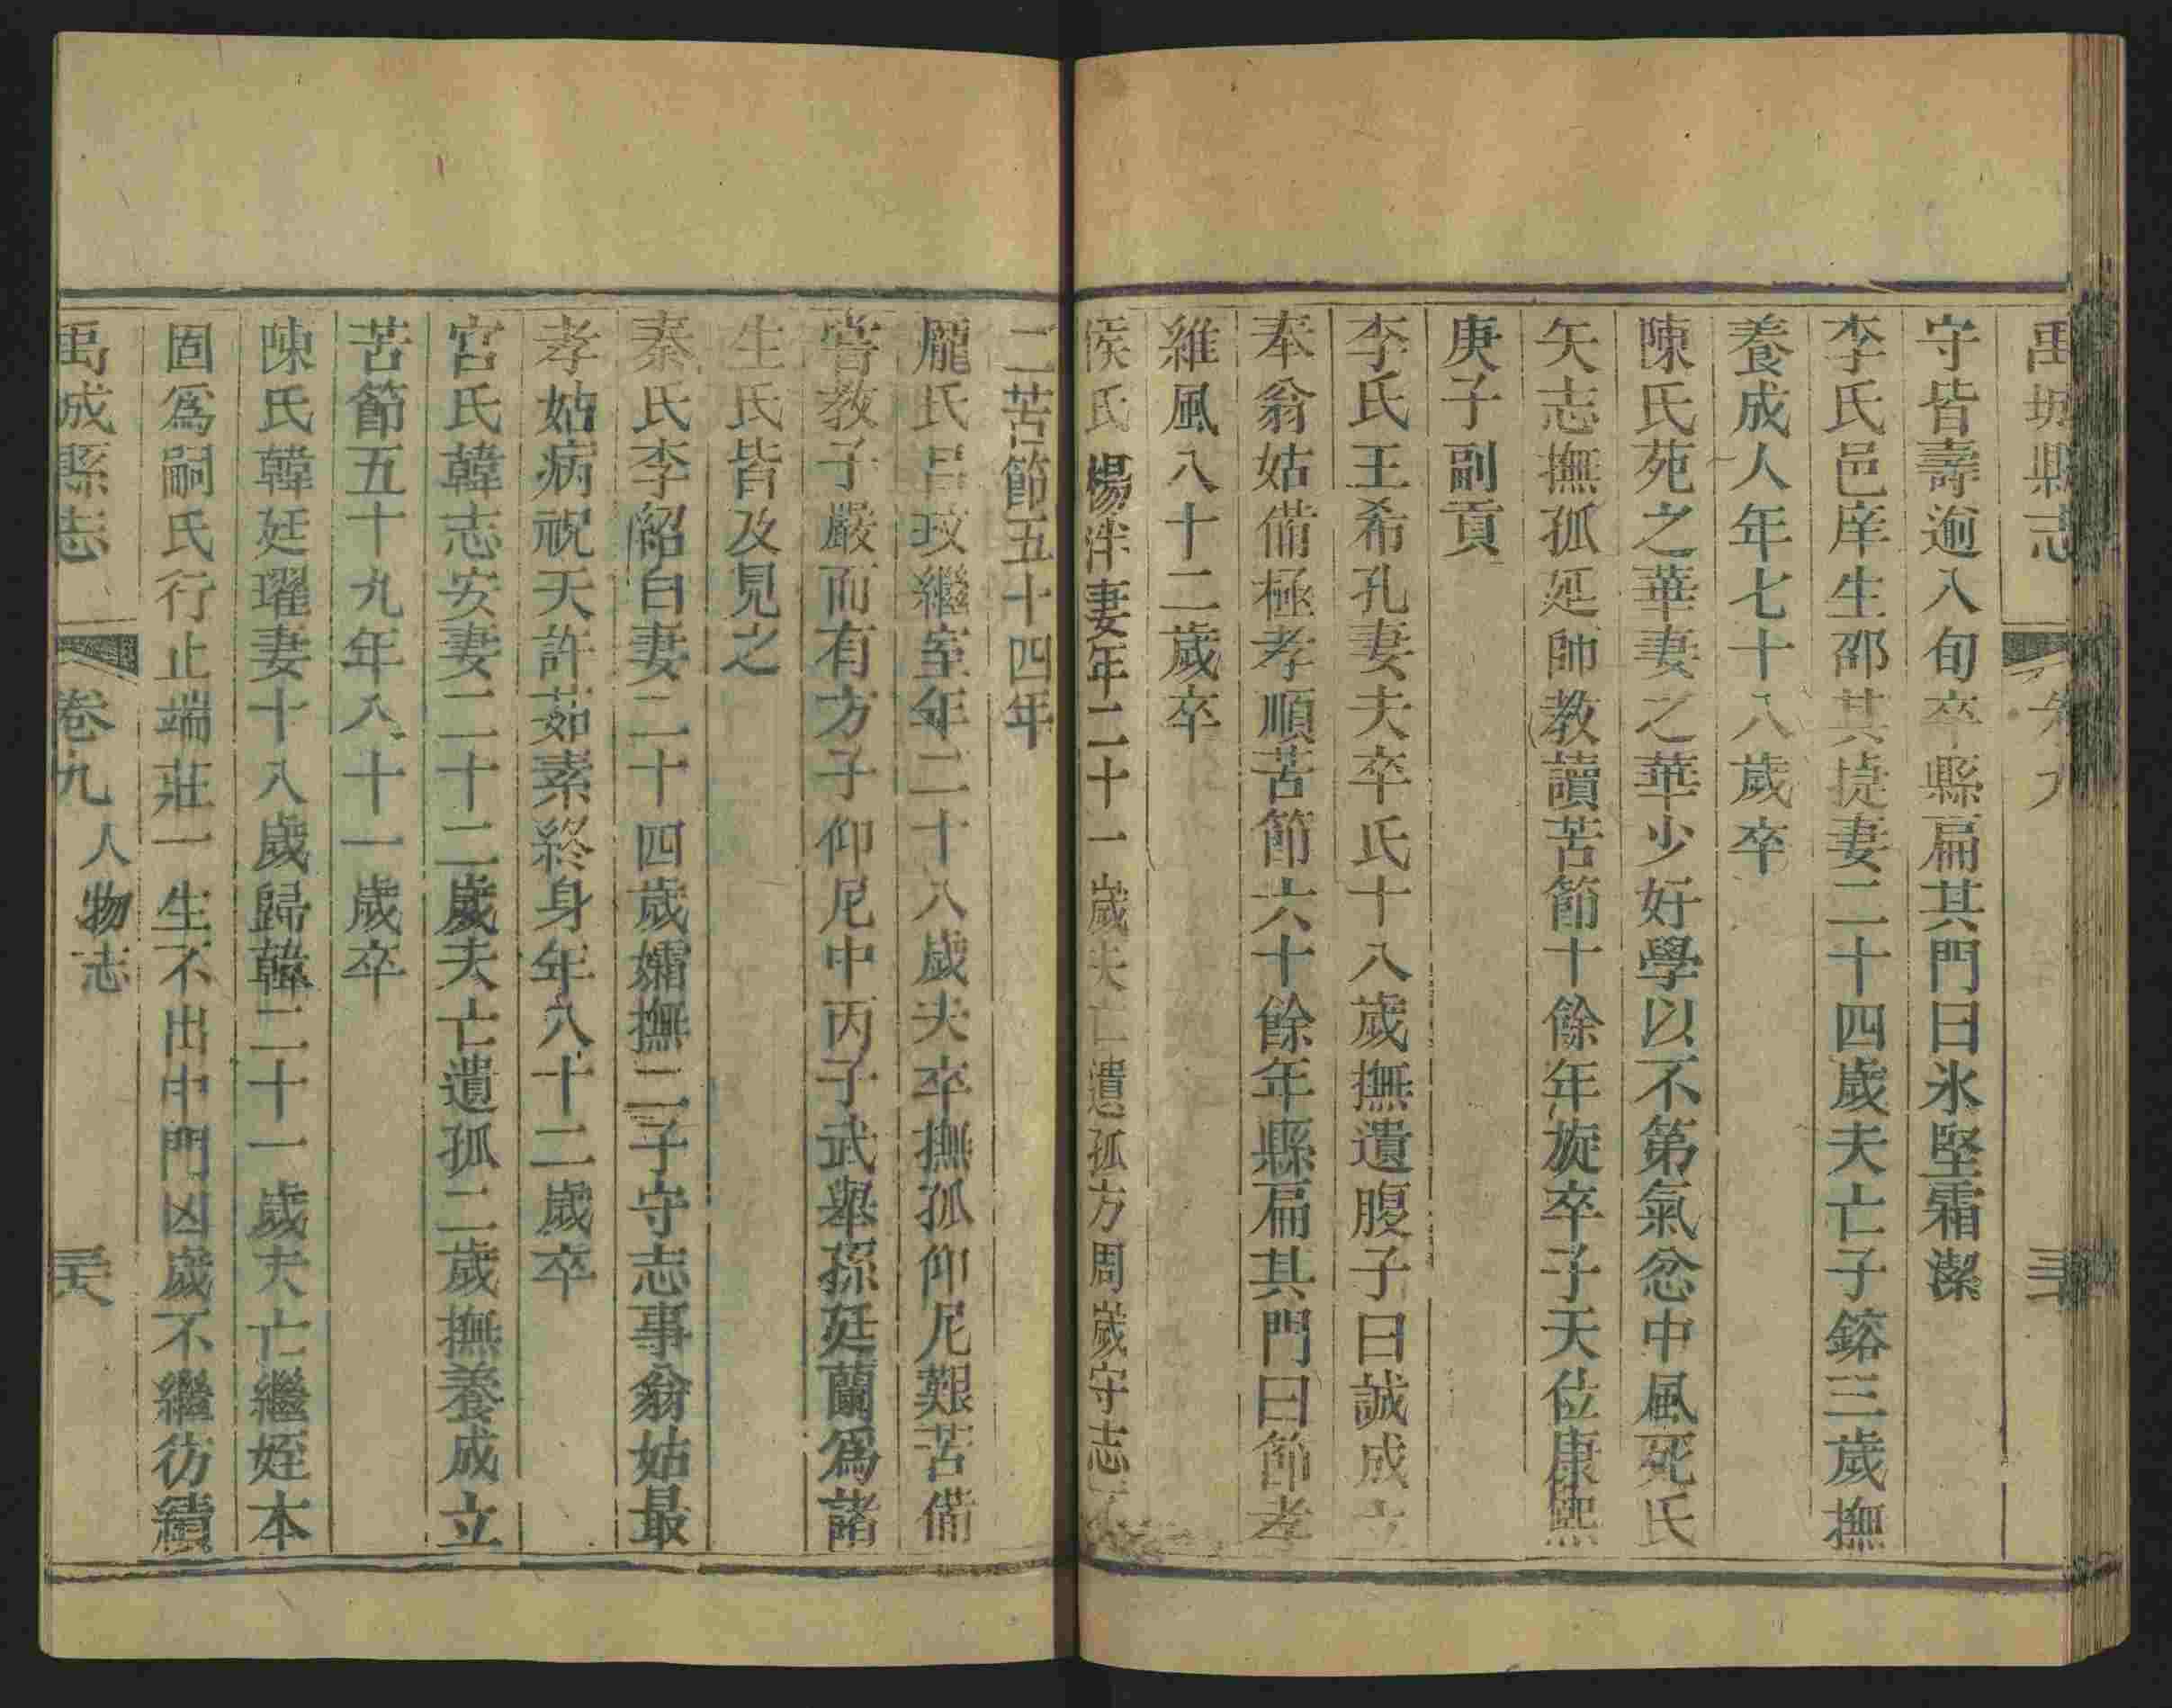 禹城縣志 卷九
守皆壽逾八旬卒縣扁其門曰氷堅霜潔
李氏邑庠生邵其㨗妻二十四歲夫亡子鎔三歲撫
養成人年七十八歲卒
陳氏苑之華妻之華少好學以不第氣忿中風死氏
矢志撫孤延師教讀苦節十餘年旋卒子天位康熙
庚子副貢
李氏王希孔妻夫卒氏十八歲撫遺腹子曰誠成立
奉翁姑備極孝順苦節六十餘年縣扁其門曰節孝
維風八十二歲卒
侯氏楊泮妻年二十一歲夫亡遺孤方周歲守志不
二苦節五十四年
龐氏昌玟繼室年二十八歲夫卒撫孤仰尼艱苦備
嘗教子嚴而有方子仰尼中丙子武舉孫廷蘭爲諸
生氏皆及見之
秦氏李紹白妻二十四歲孀撫二子守志事翁姑最
孝姑病祝天許茹素終身年八十二歲卒
宮氏韓志安妻二十二歲夫亡遺孤二歲撫養成立
苦節五十九年八十一歲卒
陳氏韓廷曜妻十八歲歸韓二十一歲夫亡繼姪本
固爲嗣氏行止端莊一生不出中門凶歲不繼彷績
禹城縣志 卷九 人物志 三十六